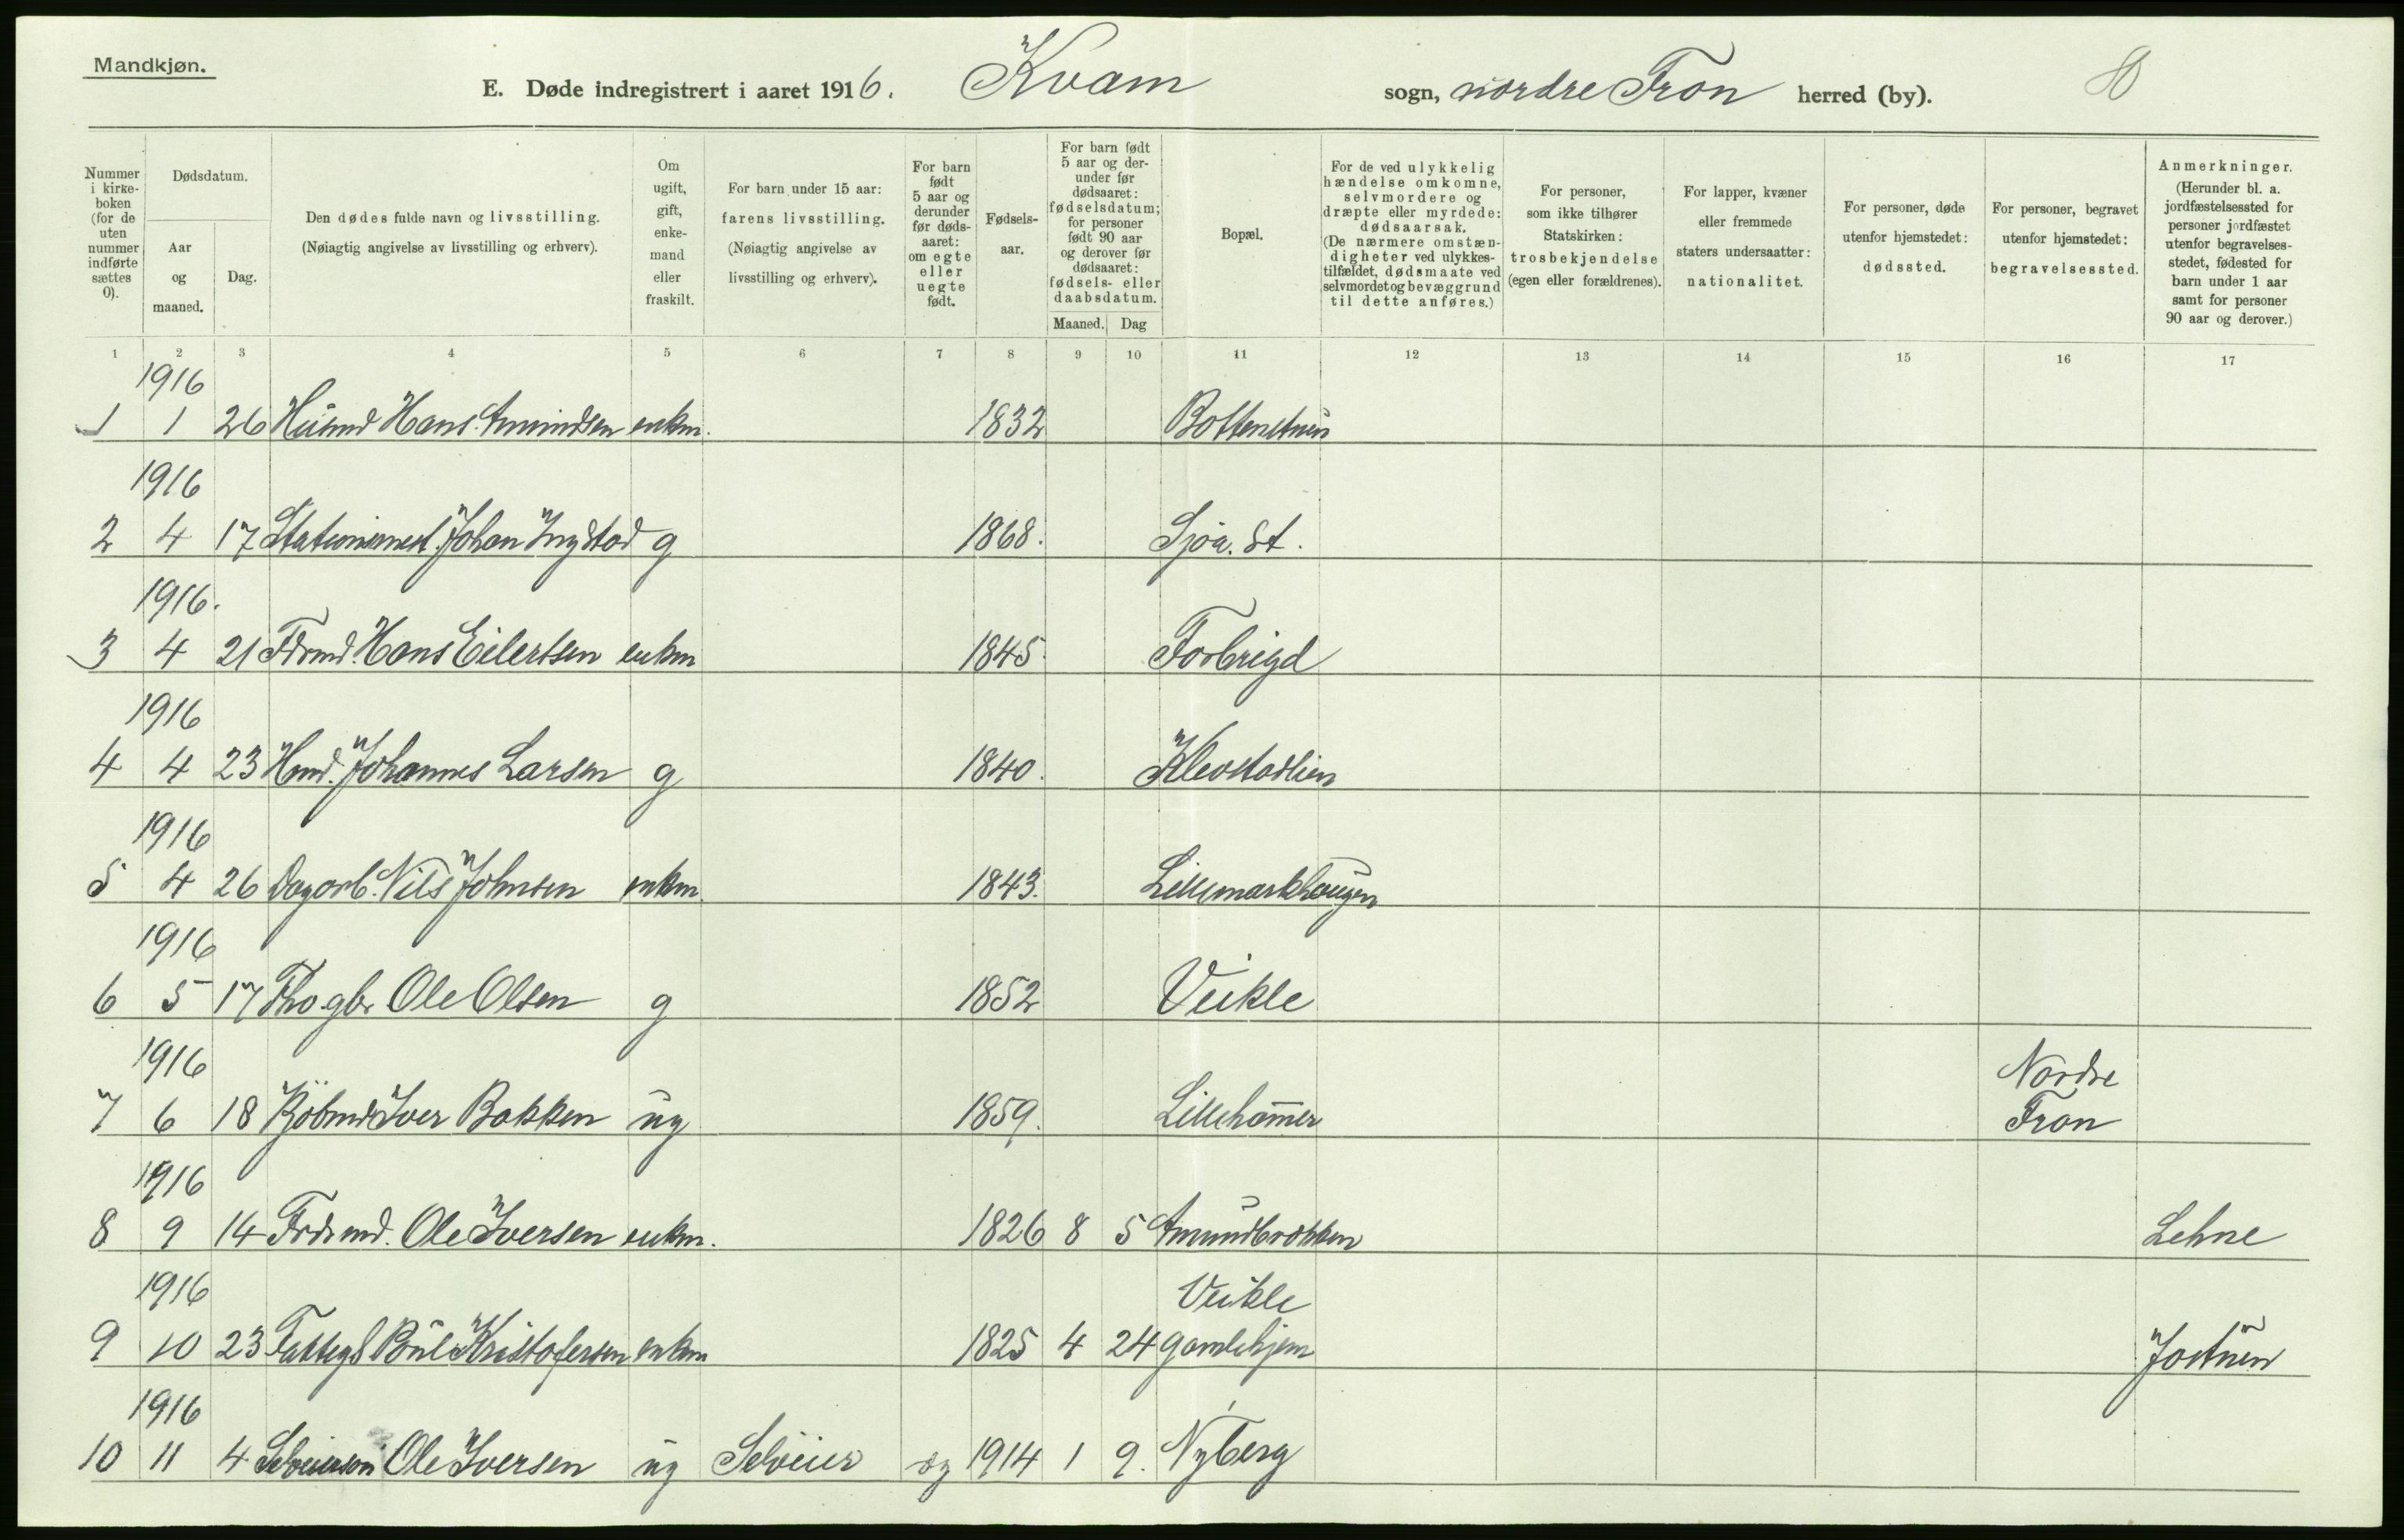 Mandkjøn.
E. Døde indregistrert i aaret 1916. Kvam sogn, nordre Fron herred (by).
Nummer i kirkeboken (for de uten nummer indførte sættes 0).
Dødsdatum.
Aar og maaned.
Dag.
Den dødes fulde navn og livsstilling.
(Nøiagtig angivelse av livsstilling og erhverv).
Om ugift, gift, enkemand eller fraskilt.
For barn under 15 aar:
farens livsstilling.
(Nøiagtig angivelse av livsstilling og erhverv).
For barn født 5 aar og derunder før dødsaaret: om egte eller uegte født.
Fødselsaar.
For barn født 5 aar og derunder før dødsaaret: fødselsdatum; for personer født 90 aar og derover før dødsaaret: fødsels- eller daabsdatum.
Maaned. Dag
Bopæl.
For de ved ulykkelig hændelse omkomne, selvmordere og dræpte eller myrdede: dødsaarsak.
(De nærmere omstændigheter ved ulykkestilfældet, dødsmaate ved selvmordet og bevæggrund til dette anføres.)
For personer, som ikke tilhører Statskirken: trosbekjendelse (egen eller forældrenes).
For lapper, kvæner eller fremmede staters undersaatter: nationalitet.
For personer, døde utenfor hjemstedet: dødssted.
For personer, begravet utenfor hjemstedet: begravelsessted.
Anmerkninger.
(Herunder bl. a. jordfæstelsessted for personer jordfæstet utenfor begravelsesstedet, fødested for barn under 1 aar samt for personer 90 aar og derover.)
1 2 3 4 5 6 7 8 9 10 11 12 13 14 15 16 17
1916
1 1 26 Husmd Hans Amundsen enkm. 1832
1916
2 4 17 Stationsmest. Johan Ingstad g 1868. Sjoa. St.
1916.
3 4 21 Fdrmd. Hans Eilertsen enkm 1845. Forbrigd
1916
4 4 23 Hmd. Johannes Larsen g 1840. Klevstadlien
1916
5 4 26 Dagarb. Nils Johnsen enkm. 1843. Lillemarkhaugen
1916
6 5 17 Fho. gbr. Ole Olsen g 1852 Veikle
1916 Nordre
7 6 18 Kjøbmd Iver Bakken ug 1859. Lillehamer Fron
1916
8 9 14 Frdrmd. Ole Iversen enkm. 1826 8 5 Amundbrækken Lehne
1916 Veikle
9 10 23 Fattigl Paul Kristofersen enkm 1825 4 24 gamlehjem Jostuen
1916
10 11 4 Selveierson Ole Iversen ug Selveier æg 1914 1 9. Nyberg